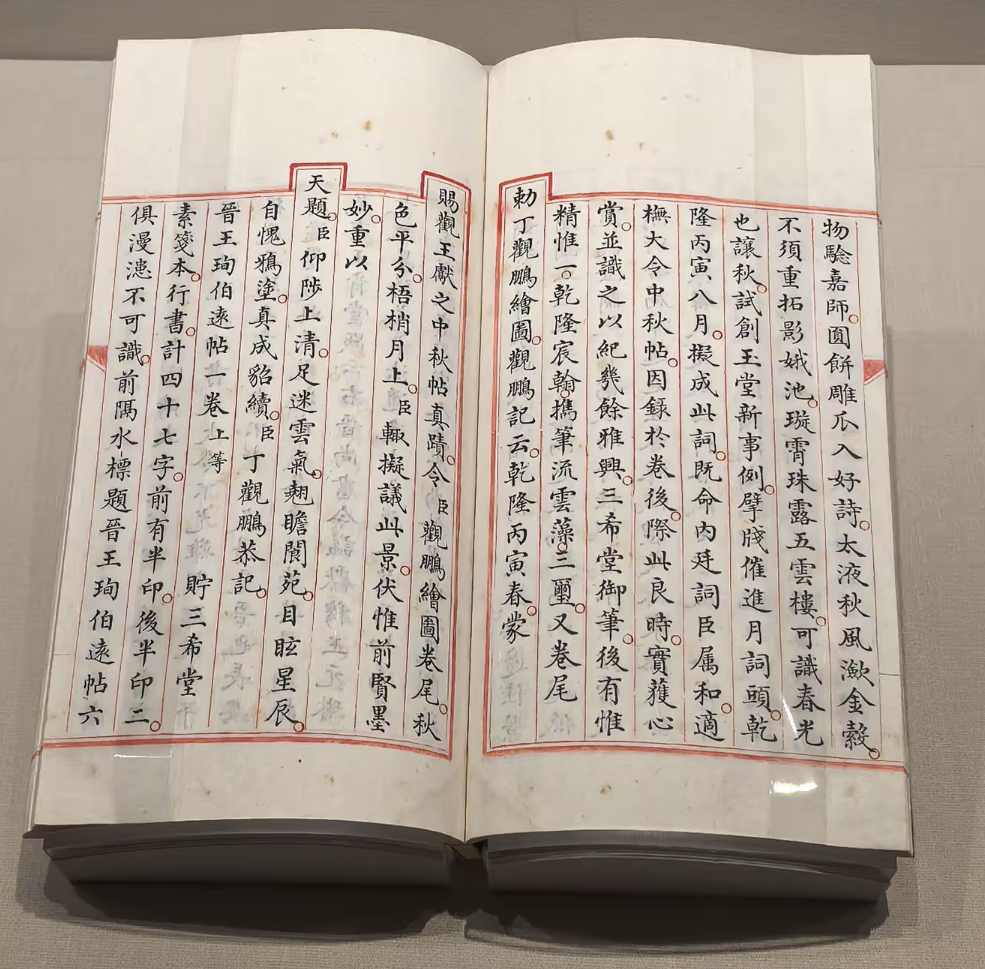 物驗嘉師圓餅雕瓜入好詩太液秋風漱金縠
不須重拓影娥池璇霄珠露五雲樓可識春光
也讓秋試創玉堂新事例擘牋催進月詞頭乾
隆丙寅八月擬成此詞既命內廷詞臣属和適
橅大令中秋帖因錄於卷後際此良時實蒦心
賞並識之以紀幾餘雅興三希堂御筆後有惟
精惟一乾隆宸翰擕筆流雲藻三璽又卷尾
勅丁觀鵬繪圖觀鵬記云乾隆丙寅春蒙
賜觀王獻之中秋帖真蹟令臣觀鵬繪圖卷尾秋
色平分梧梢月上臣輙擬議此景伏惟前賢墨
妙重以
天題臣仰陟上清足迷雲氣翹瞻閬苑目眩星辰
自愧鴉塗真成貂續臣丁觀鵬恭記
晉王珣伯遠帖一卷上等 貯三希堂
素箋本行書計四十七字前有半印後半印二
俱漫漶不可識前隔水標題晉王珣伯遠帖六